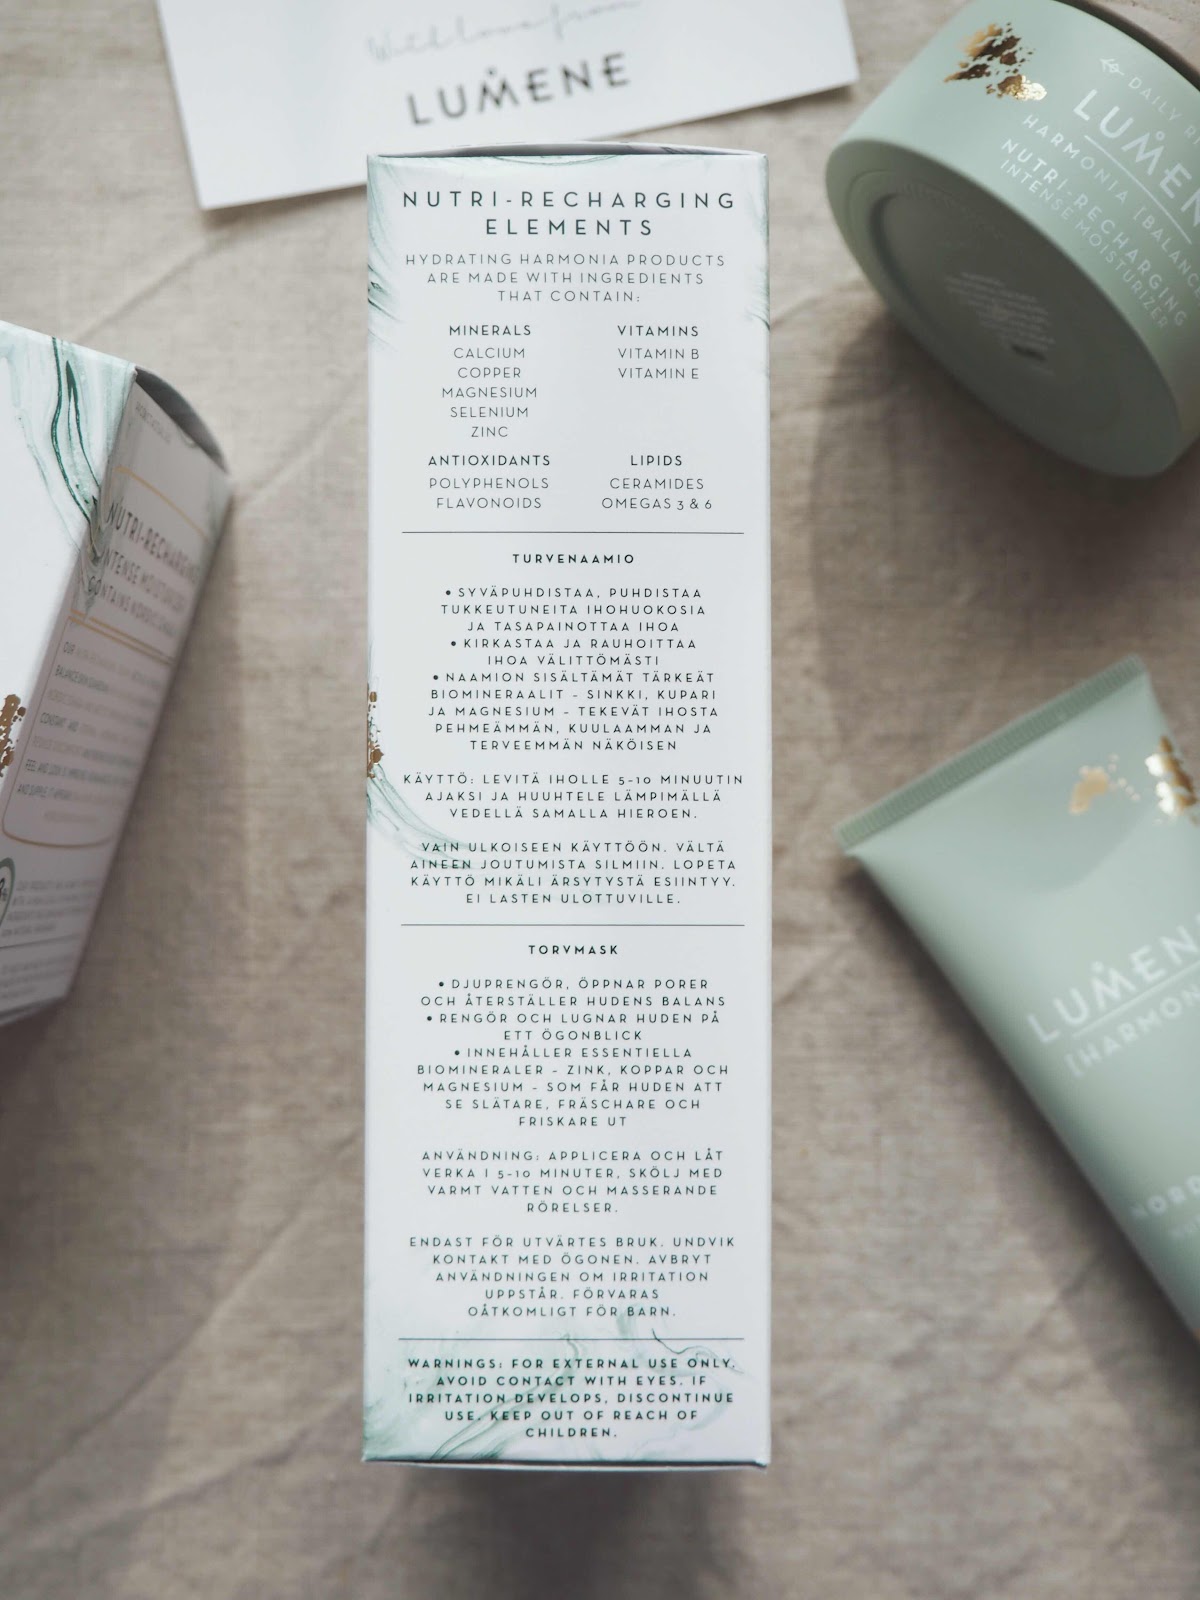 With love from
LUMENE
NUTRI-RECHARGING
ELEMENTS
HYDRATING HARMONIA PRODUCTS
ARE MADE WITH INGREDIENTS
THAT CONTAIN:
MINERALS
CALCIUM
COPPER
MAGNESIUM
SELENIUM
ZINC
VITAMINS
VITAMIN B
VITAMIN E
ANTIOXIDANTS
POLYPHENOLS
FLAVONOIDS
LIPIDS
CERAMIDES
OMEGAS 3 & 6
TURVENAAMIO
• SYVÄPUHDISTAA, PUHDISTAA
TUKKEUTUNEITA IHOHUOKOSIA
JA TASAPAINOTTAA IHOA
• KIRKASTAA JA RAUHOITTAA
IHOA VÄLITTÖMÄSTI
• NAAMION SISÄLTÄMÄT TÄRKEÄT
BIOMINERAALIT – SINKKI, KUPARI
JA MAGNESIUM – TEKEVÄT IHOSTA
PEHMEÄMMÄN, KUULAAMMAN JA
TERVEEMMÄN NÄKÖISEN
KÄYTTÖ: LEVITÄ IHOLLE 5-10 MINUUTIN
AJAKSI JA HUUHTELE LÄMPIMÄLLÄ
VEDELLÄ SAMALLA HIEROEN.
VAIN ULKOISEEN KÄYTTÖÖN. VÄLTÄ
AINEEN JOUTUMISTA SILMIIN. LOPETA
KÄYTTÖ MIKÄLI ÄRSYTYSTÄ ESIINTYY.
EI LASTEN ULOTTUVILLE.
TORVMASK
• DJUPRENGÖR, ÖPPNAR PORER
OCH ÅTERSTÄLLER HUDENS BALANS
• RENGÖR OCH LUGNAR HUDEN PÅ
ETT ÖGONBLICK
• INNEHÅLLER ESSENTIELLA
BIOMINERALER – ZINK, KOPPAR OCH
MAGNESIUM – SOM FÅR HUDEN ATT
SE SLÄTARE, FRÄSCHARE OCH
FRISKARE UT
ANVÄNDNING: APPLICERA OCH LÅT
VERKA I 5-10 MINUTER, SKÖLJ MED
VARMT VATTEN OCH MASSERANDE
RÖRELSER.
ENDAST FÖR UTVÄRTES BRUK. UNDVIK
KONTAKT MED ÖGONEN. AVBRYT
ANVÄNDNINGEN OM IRRITATION
UPPSTÅR. FÖRVARAS
OÅTKOMLIGT FÖR BARN.
WARNINGS: FOR EXTERNAL USE ONLY.
AVOID CONTACT WITH EYES. IF
IRRITATION DEVELOPS, DISCONTINUE
USE. KEEP OUT OF REACH OF
CHILDREN.
DAILY
LUMEN
HARMONIA [BALANC
NUTRI-RECHARGING
INTENSE MOISTURIZER
NUTRI-RECHARGING
INTENSE MOISTURIZER
CONTAINS NORDIC
LUMEN
[HARMON
NORD